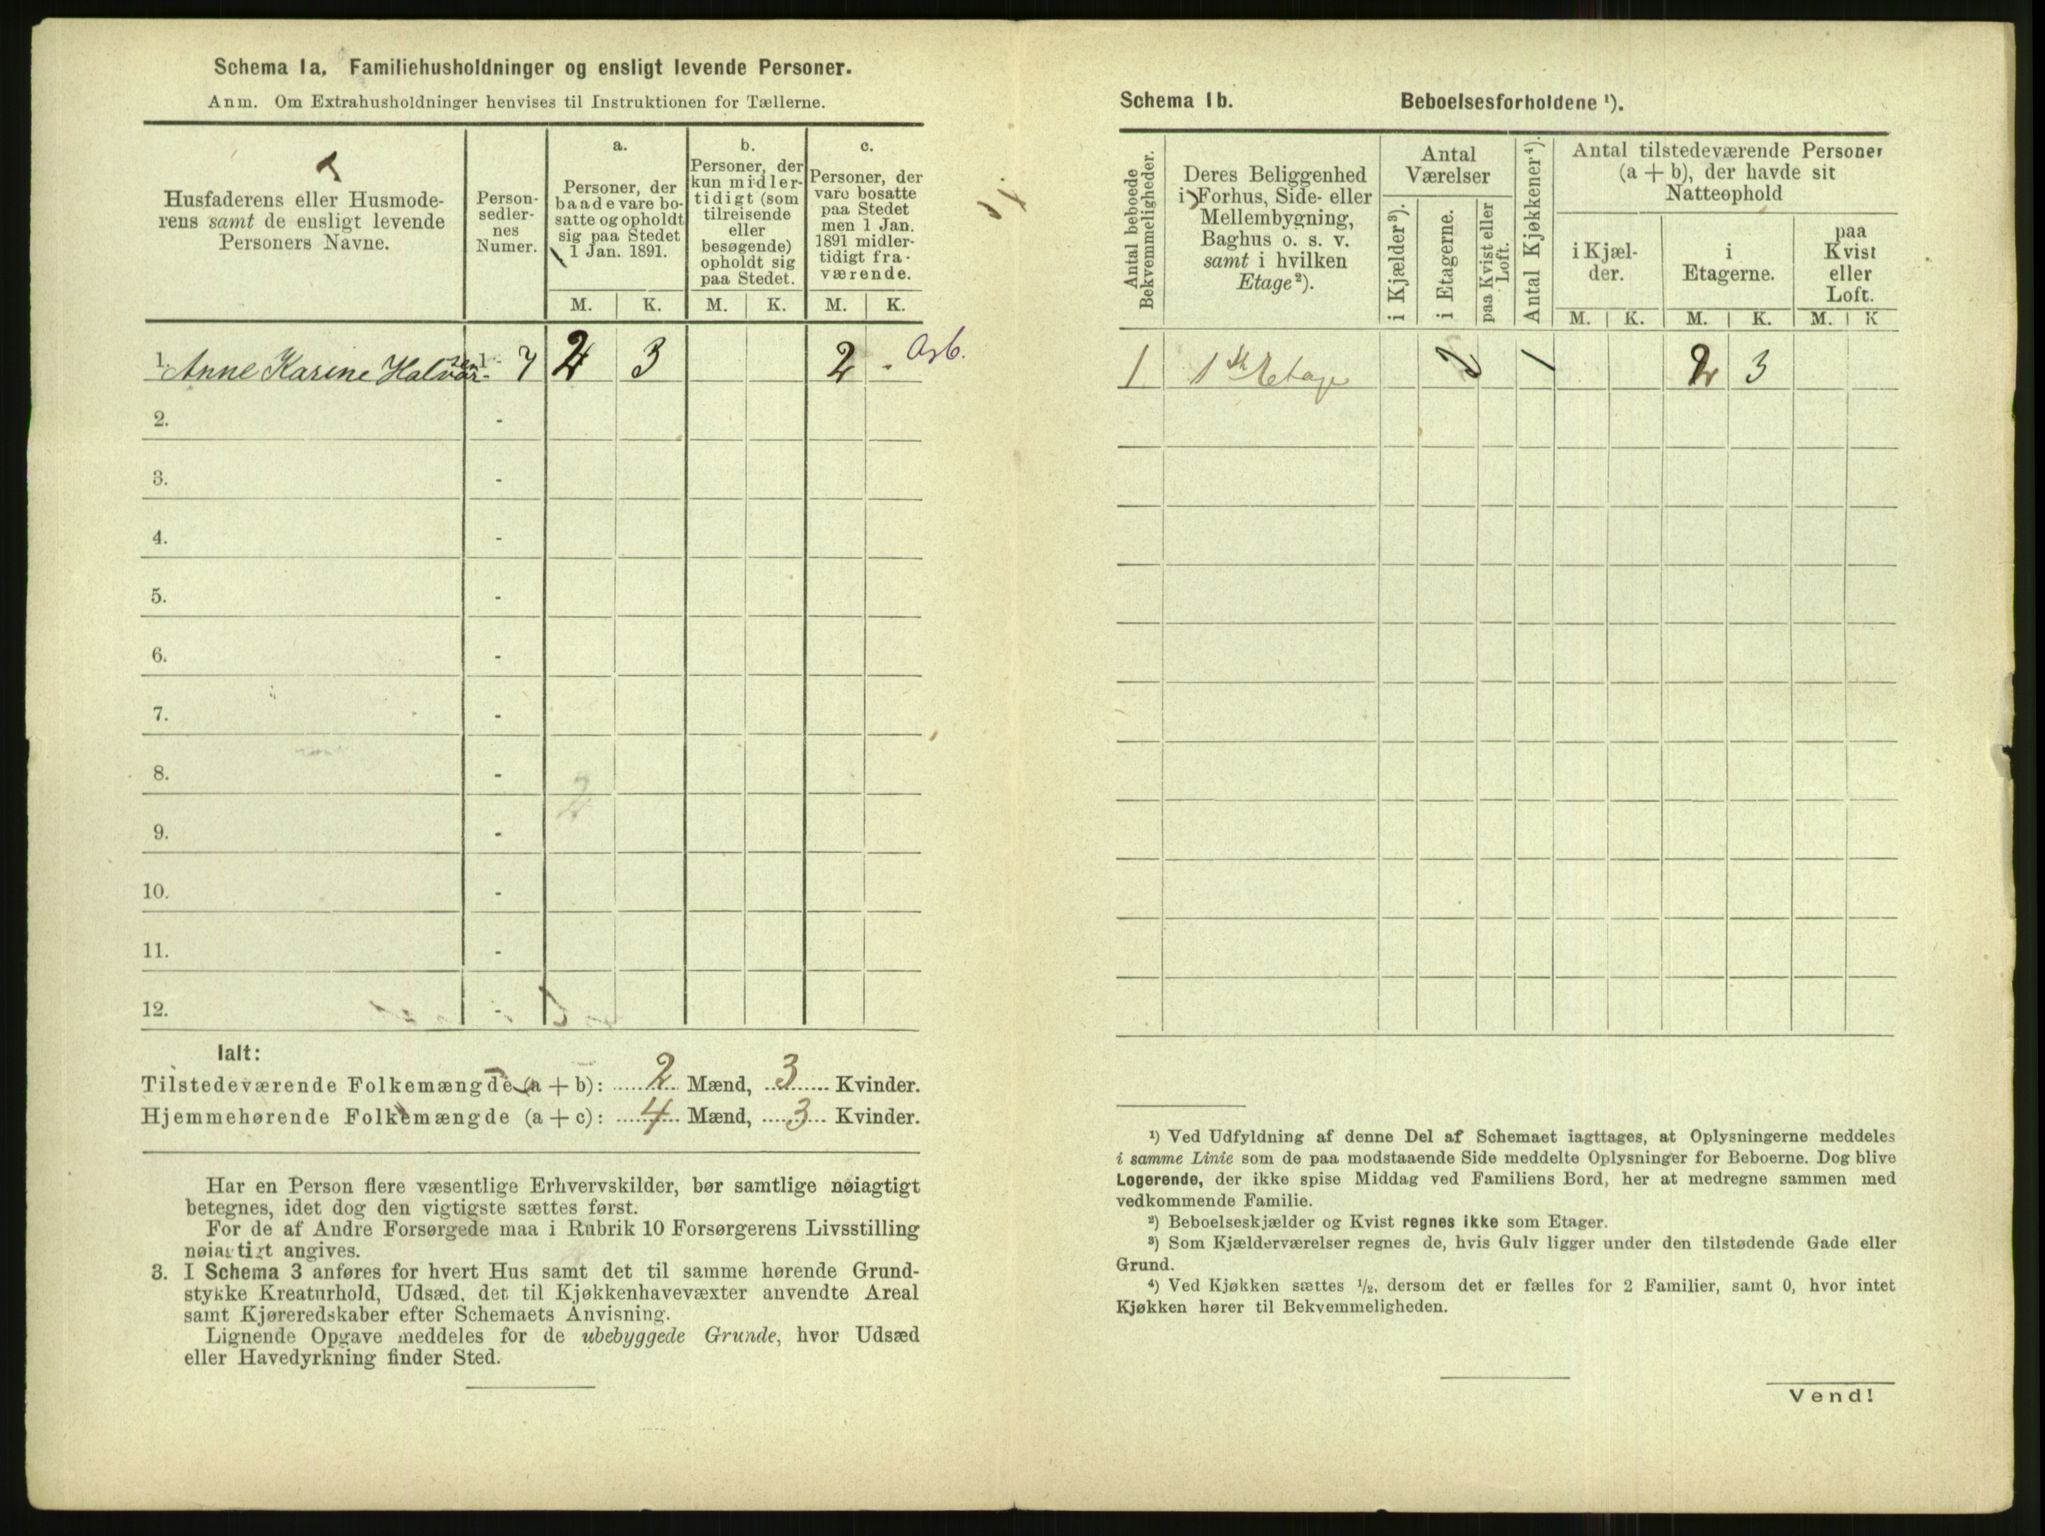 Schema 1a. Familiehusholdninger og ensligt levende Personer.
Anm. Om Extrahusholdninger henvises til Instruktionen for Tællerne.
Husfaderens eller Husmode-
rens samt de ensligt levende
Personers Navne.
Person-
sedler-
nes
Numer.
a.
Personer, der
baade vare bo-
satte og opholdt
sig paa Stedet
1 Jan. 1891.
b.
Personer, der
kun midler-
tidigt (som
tilreisende
eller
besøgende)
opholdt sig
paa Stedet.
c.
Personer, der
vare bosatte
paa Stedet
men 1 Jan.
1891 midler-
tidigt fra-
værende.
M. K. M. K. M. K.
1. Anne Karine Halvor 1 - 7 2 3 2 - Arb.
2. -
3. -
4. -
5. -
6. -
7. -
8. -
9. -
10. -
11. -
12. -
Ialt:
Tilstedeværende Folkemængde (a + b): 2 Mænd, 3 Kvinder.
Hjemmehørende Folkemængde (a + c): 4 Mænd, 3 Kvinder.
Har en Person flere væsentlige Erhvervskilder, bør samtlige nøiagtigt
betegnes, idet dog den vigtigste sættes først.
For de af Andre Forsørgede maa i Rubrik 10 Forsørgerens Livsstilling
nøiagtigt angives.
3. I Schema 3 anføres for hvert Hus samt det til samme hørende Grund-
stykke Kreaturhold, Udsæd, det til Kjøkkenhavevæxter anvendte Areal
samt Kjøreredskaber efter Schemaets Anvisning.
Lignende Opgave meddeles for de ubebyggede Grunde, hvor Udsæd
eller Havedyrkning finder Sted.
Schema 1b. Beboelsesforholdene ¹).
Antal beboede
Bekvemmeligheder.
Deres Beliggenhed
i Forhus, Side- eller
Mellembygning,
Baghus o. s. v.
samt i hvilken
Etage ²).
Antal
Værelser
i Kjælder ³).
i Etagerne.
paa Kvist eller
Loft.
Antal Kjøkkener ⁴).
Antal tilstedeværende Personer
(a + b), der havde sit
Natteophold
i Kjæl-
der.
i
Etagerne.
paa
Kvist
eller
Loft.
M. K. M. K. M. K
1 1ste Etage 2 1 2 3
¹) Ved Udfyldning af denne Del af Schemaet iagttages, at Oplysningerne meddeles
i samme Linie som de paa modstaaende Side meddelte Oplysninger for Beboerne. Dog blive
Logerende, der ikke spise Middag ved Familiens Bord, her at medregne sammen med
vedkommende Familie.
²) Beboelseskjælder og Kvist regnes ikke som Etager.
³) Som Kjælderværelser regnes de, hvis Gulv ligger under den tilstødende Gade eller
Grund.
⁴) Ved Kjøkken sættes ½, dersom det er fælles for 2 Familier, samt 0, hvor intet
Kjøkken hører til Bekvemmeligheden.
Vend!